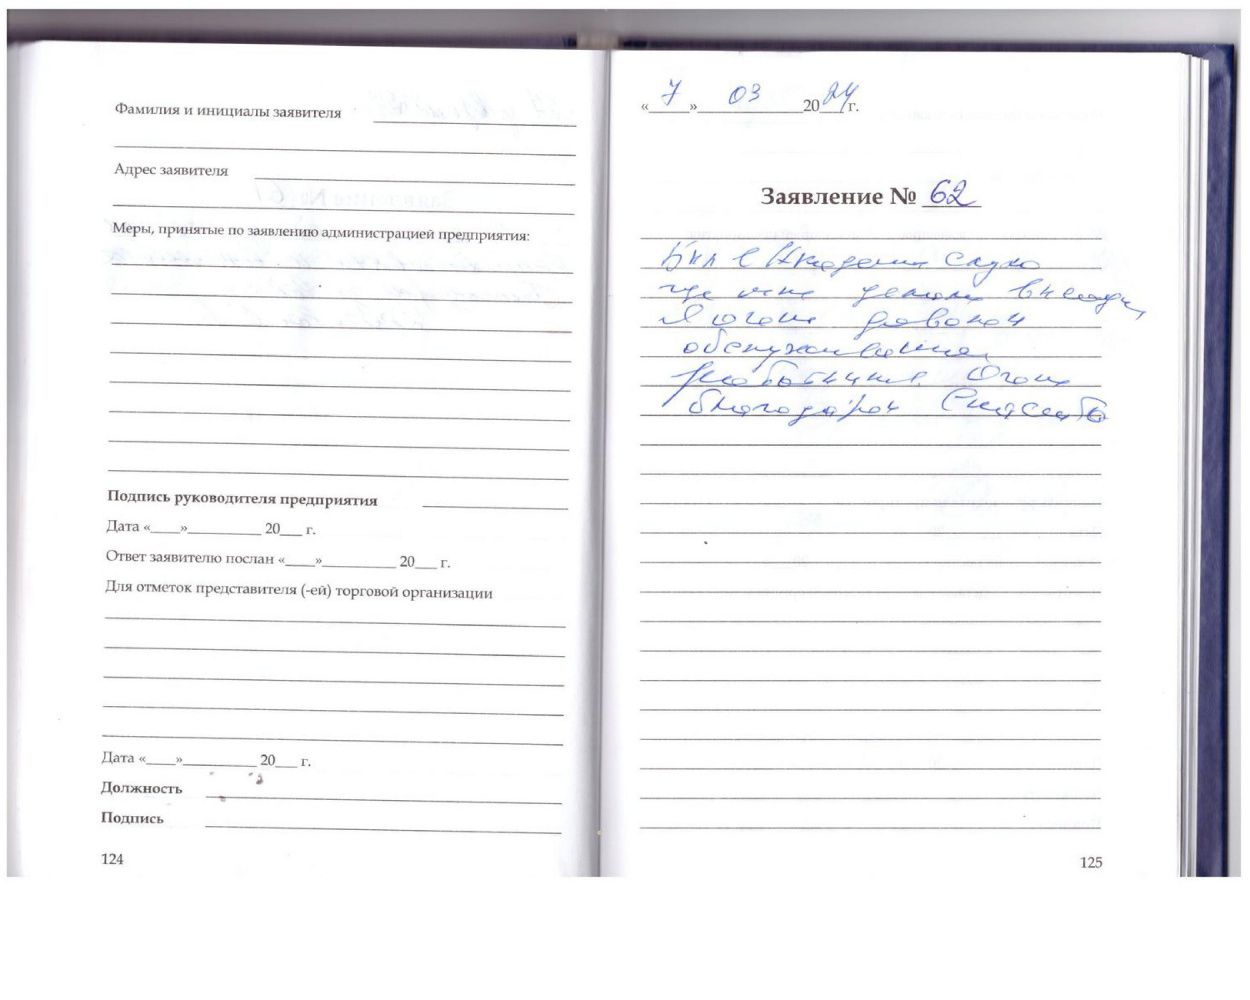 Фамилия и инициалы заявителя
Адрес заявителя
Меры, принятые по заявлению администрацией предприятия:
Подпись руководителя предприятия
Дата «____»__________ 20___ г.
Ответ заявителю послан «____»__________ 20___ г.
Для отметок представителя (-ей) торговой организации
Дата «____»__________ 20___ г.
Должность
Подпись
124
«7» 03 2024 г.
Заявление № 62
Был в Академии Слуха
где мне делали
Я очень доволен
обслуживанием
Очень
благодарен Спасибо
125